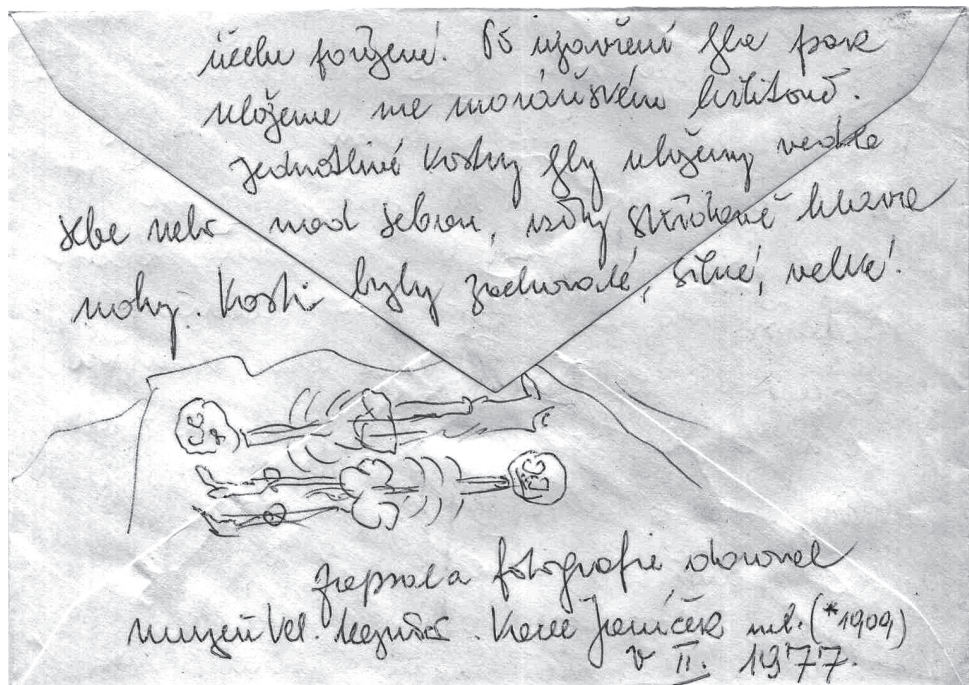 účelu pořízené. Po uzavření byla pak
uložena na moravském hřbitově.
Jednotlivé kostry byly uloženy vedle
sebe nebo nad sebou, vždy střídavě hlava
nohy. Kosti byly zachovalé, silné, velké.
zapsal a fotografie daroval
muzeu Vel. Karel Janíček nar. (*1909)
v II. 1977.